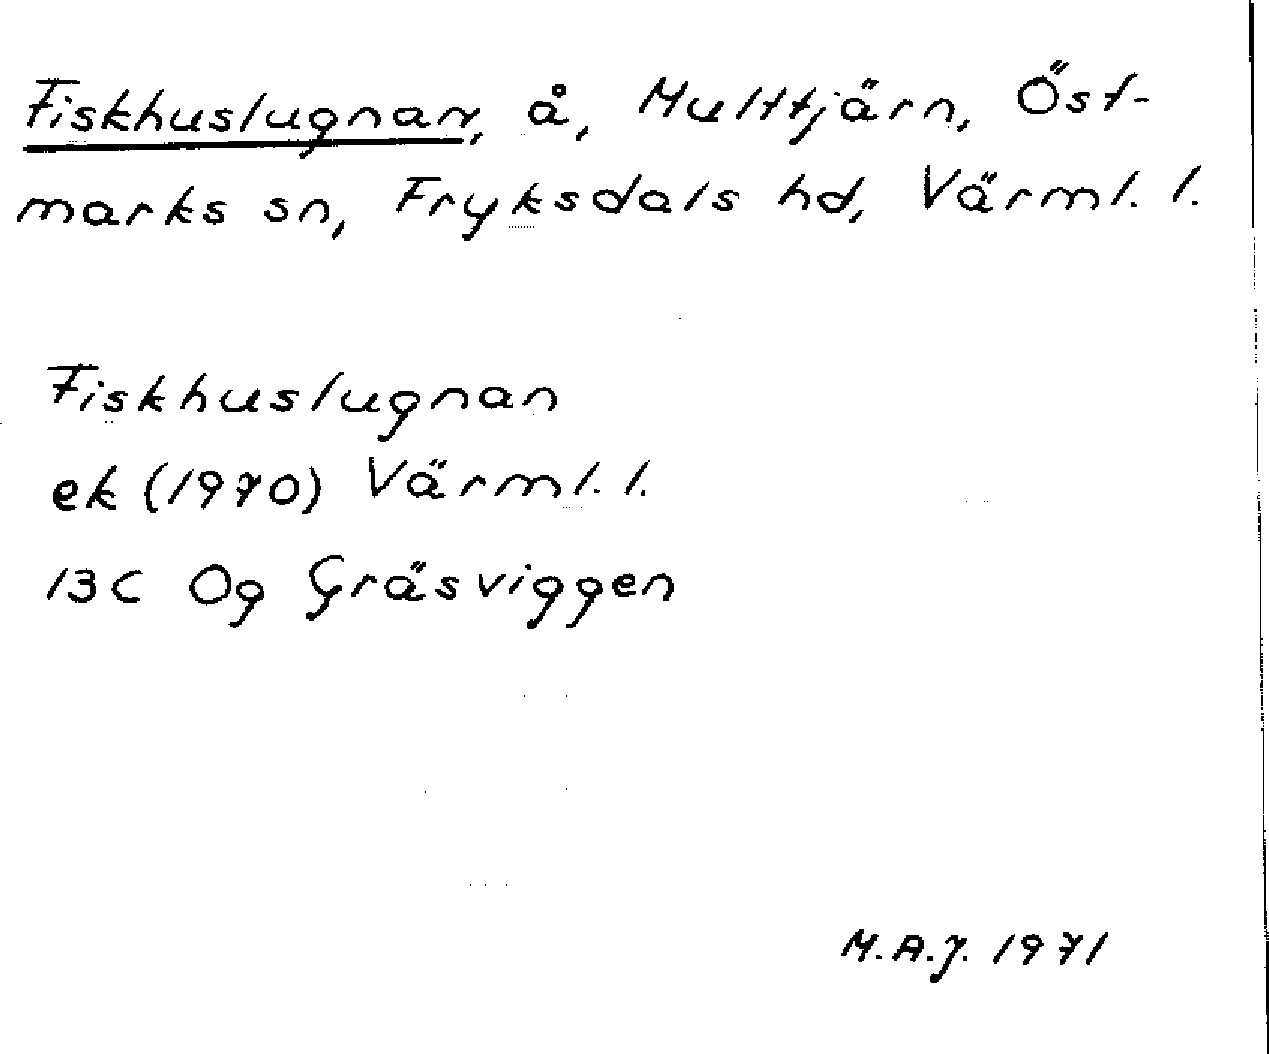 Fiskhuslugnan, å, Multtjärn, Öst-
marks sn, Fryksdals hd, Värml. l.
Fiskhuslugnan
ek (1970) Värml. l.
13C Og Gräsviggen
M.A.J. 1971